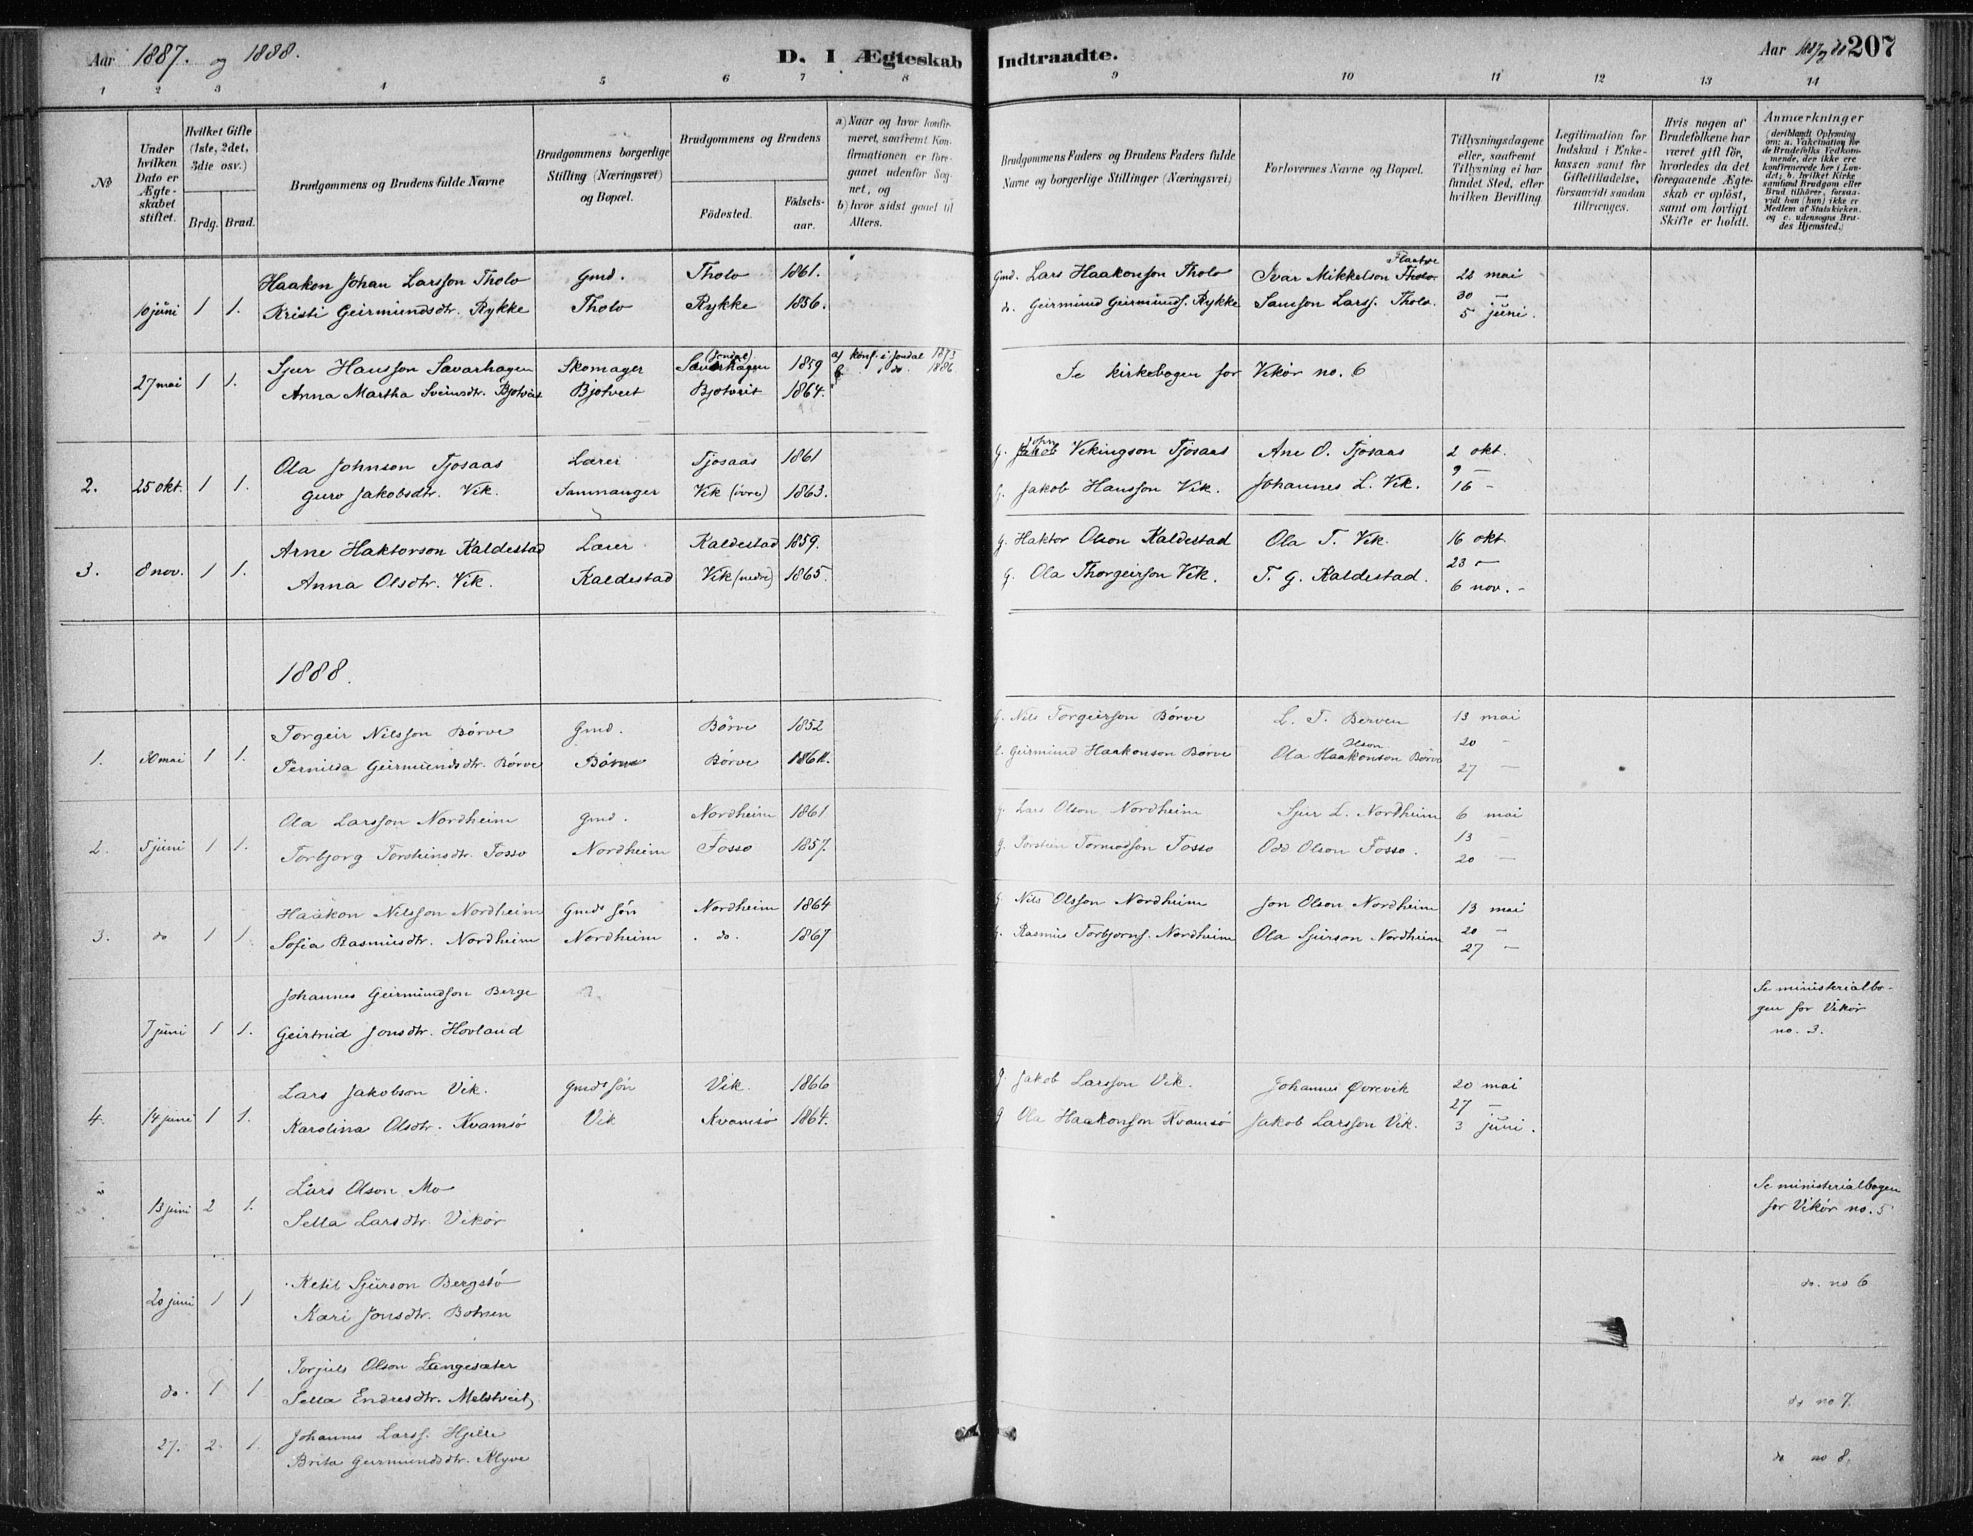 Aar 1887. og 1888.
D. I Ægteskab Indtraadte.
Aar 1887 og 88 207
1 2 3 4 5 6 7 8 9 10 11 12 13 14
No
Under hvilken Dato er Ægteskabet stiftet.
Hvilket Gifte (1ste, 2det, 3die osv.)
Brdg. Brud.
Brudgommens og Brudens fulde Navne
Brudgommens borgerlige Stilling (Næringsvei) og Bopæl.
Brudgommens og Brudens
Födested.
Födselsaar.
a) Naar og hvor konfirmeret, saafremt Konfirmationen er foregaaet udenfor Sognet, og
b) hvor sidst gaaet til Alters.
Brudgommens Faders og Brudens Faders fulde Navne og borgerlige Stillinger (Næringsvei)
Forlovernes Navne og Bopæl.
Tillysningsdagene eller, saafremt Tillysning ei har fundet Sted, efter hvilken Bevilling
Legitimation for Indskud i Enkekassen samt for Giftetilladelse, forsaavidt saadan tiltrænges.
Hvis nogen af Brudefolkene har været gift för, hvorledes da det foregaaende Ægteskab er oplöst, samt om lovligt Skifte er holdt.
Anmærkninger
(deriblandt Oplysning om: a. Vakcination for de Brudefolks Vedkommende, der ikke ere konfirmerede her i Landet; b. hvilket Kirkesamfund Brudgom eller Brud tilhörer, forsaavidt han (hun) ikke er Medlem af Statskirken, og c. udensogns Brudes Hjemsted.)
Haakon Johan Larsson Tholo Gmd. Tholo 1861. Gmd. Lars Haakonson Tholo Ivar Mikkelson Tholo 22 mai
10 juni 1 1. Kristi Geirmundsdtr. Rykke Tholo Rykke 1856. do. Geirmund Geirmunds. Rykke Samson Larss. Tholo. 30 —
5 juni.
Sjur Hansson Savarhagen Skomager Savarhagen (Jondal) 1859 a) konf. i Jondal 1873
27 mai 1 1. Anna Martha Sveinsdtr. Bjotveit Bjotveit Bjotveit 1864. do. 1886
Se kirkebogen for Vikör no. 6
Ola Johnson Tjosaas Lærer Tjosaas 1861 G. John Vikingson Tjosaas Ane O. Tjosaas 2 okt.
2. 25 okt. 1 1. Guro Jakobsdtr. Vik. Samnanger Vik (övre) 1863. G. Jakob Hansson Vik. Johannes L. Vik. 9 —
16 -
Arne Haktorson Kaldestad Lærer Kaldestad 1859. G. Haktor Olson Kaldestad Ola T. Vik. 16 okt
3. 8 nov. 1 1. Anna Olsdtr. Vik. Kaldestad Vik (nedre) 1865. G. Ola Thorgeirson Vik. T. G. Kaldestad. 23 -
6 nov. -
1888.
Torgeir Nilsson Börve Gmd. Börve 1852 G. Nils Torgeirson Börve L. T. Berven 13 mai
1. 30 mai 1 1. Pernilla Geirmundsdtr. Börve Börve Börve G. Geirmund Haakonson Börve Ola Haakonson Börve 20 -
Olson
27 -
Ola Larsson Nordheim Gmd. Nordheim 1861 G. Lars Olson Nordheim Sjur L. Nordheim 6 mai
2. 5 juni 1 1. Torbjorg Torsteinsdtr. Tosso Nordheim Tosso 1857. G. Torstein Tormodson Tosso Odd Olson Tosso. 13 -
20 -
Haakon Nilsson Nordheim Gmds sön Nordheim 1864 G. Nils Olsson Nordheim Jon Olson Nordheim 13 mai
3. do 1 1. Sofia Rasmusdtr. Nordheim Nordheim do. 1867 G. Rasmus Torbjorns. Nordheim Ola Sjurson Nordheim 20 -
27 -
Johannes Geirmundson Berge Se ministerialbo-
7 juni 1 1. Geirtrud Jonsdtr. Hovland gen for Vikör
no. 3.
Lars Jakobson Vik. Gmds sön Vik. 1866 G. Jakob Larsson Vik. Johannes Övrevik 20 mai
4. 14 juni 1 1. Karolina Olsdtr. Kvamsö Vik Kvamsö 1864. G Ola Haakonson Kvamsö Jakob Larsson Vik. 27 —
3 juni.
Lars Olson Mo Se ministerialbogen
13 juni 2 1. Sella Larsdtr. Vikör for Vikör no. 5
Ketil Sjurson Bergstö do. no 6
20 juni 1 1 Kari Jonsdtr. Botnen
Torjuls Olson Langesæter
do. 1 1 Sella Endresdtr. Melstveit do no 7.
Johannes Larss. Hjelle
27. 2. 1. Brita Geirmundsdtr. Klyve do no 8.